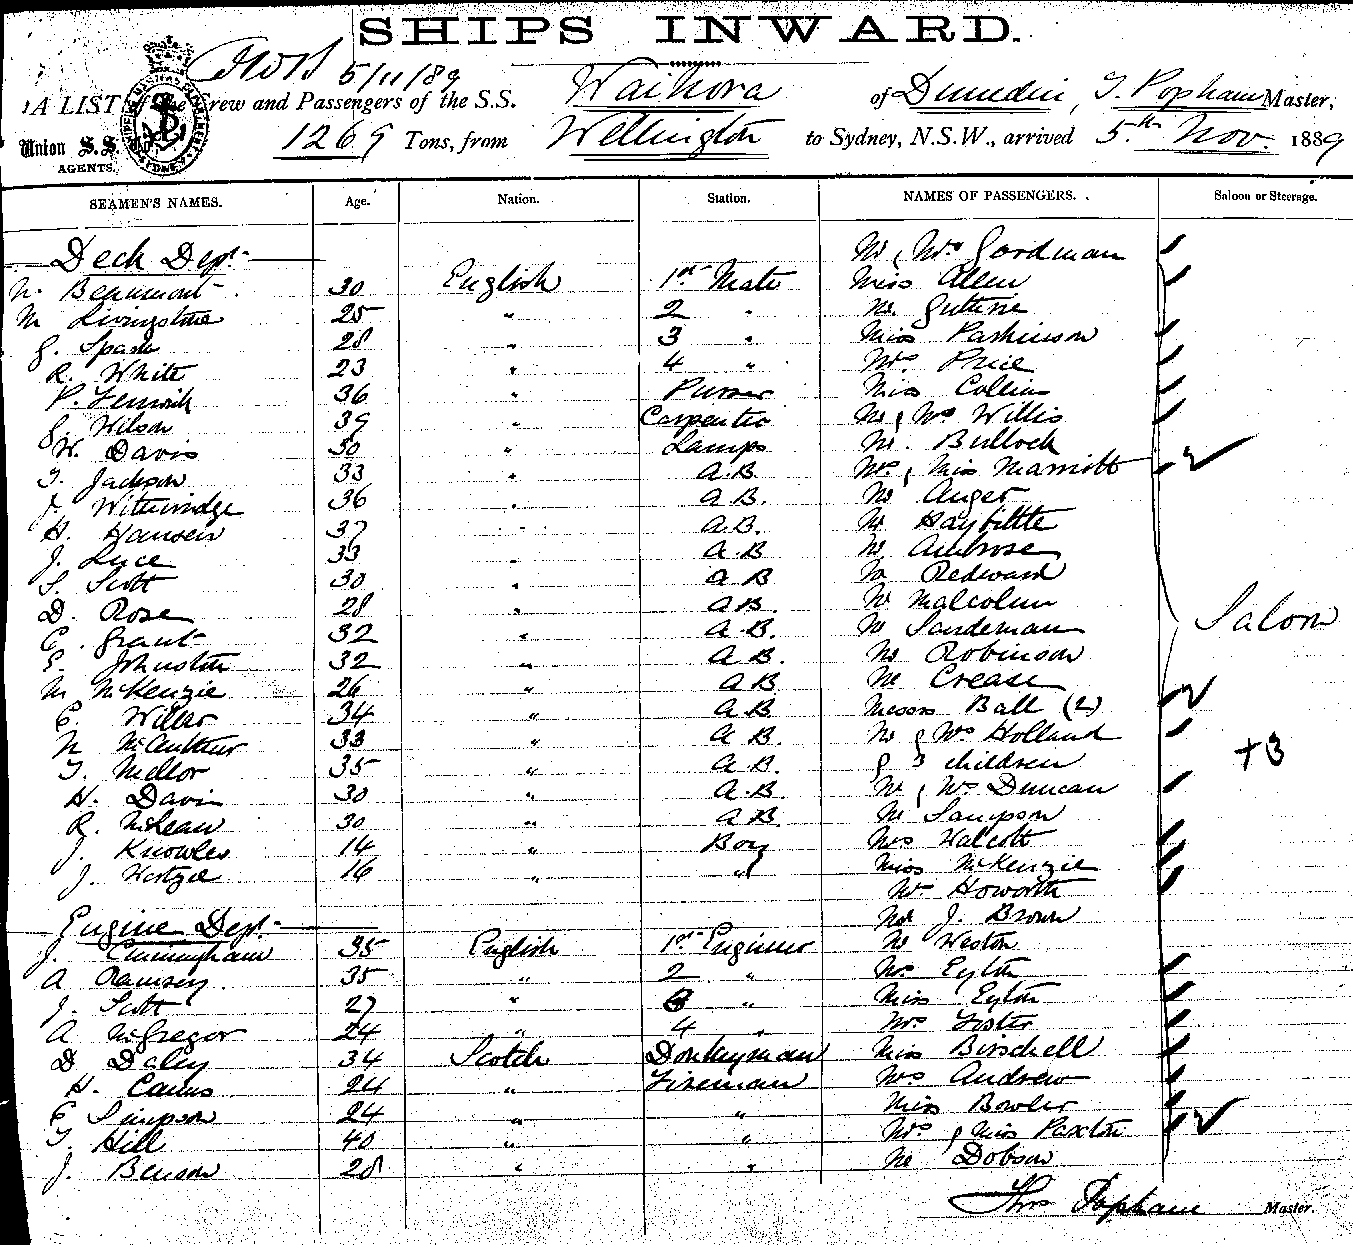 SHIPS INWARD.
5/11/89
A LIST of the Crew and Passengers of the S.S. Waihora of Dunedin, T. Popham Master,
Union S.S. Co. 1269 Tons, from Wellington to Sydney, N.S.W., arrived 5th Nov. 1889
AGENTS.
SEAMEN'S NAMES. Age. Nation. Station. NAMES OF PASSENGERS. Saloon or Steerage.
Deck Dept. Mr & Mrs Goodman
N. Beaumont 30 English 1st Mate Miss Allen
M Livingstone 25 " 2 " Mr Guthrie
J. Spark 28 " 3 " Miss Parkinson
R. White 23 " 4 " Mrs Price
P. 36 " Purser Miss Collins
J. Wilson 39 " Carpenter Mr & Mrs Willis
W. Davis 30 " Lamps Mr. Bullock
T. Jackson 33 " A.B Mrs & Miss Marriott
J. Witheridge 36 " A.B. Mr Anger
H. Hansen 37 " A.B. Mr Haybittle
J. Luce 33 " A B Mr Ambrose
S. Scott 30 " A B Mr Redward
D. Rose 28 " A B. Mr Malcolm
C. Grant 32 " A.B. Mr Sandeman Saloon
E. Johnston 32 " A B. Mr Robinson
M McKenzie 26 " A B Mr Crease
C. Willer 34 " A B Messrs Ball (2)
N McArthur 33 " A B. Mr & Mrs Holland
T. Mellor 35 " A B. & 3 children +3
H. Davis 30 " A.B Mr & Mrs Duncan
R. McLean 30 " A B. Mr Sampson
J. Knowles 14 " Boy Mrs Halcott
J. 16 " " Miss McKenzie
Mrs Howorth
Engine Dept. Mr J. Brown
J. Cunningham 35 English 1st Engineer Mr Weston
A Ramsey. 35 " 2 " Mrs Eyton
J. Scott 27 " 3 " Miss Eyton
A McGregor 24 " 4 " Mrs Foster
D Daley 34 Scotch Donkeyman Miss Birschell
H. Cairns 24 " Fireman Mrs Andrew
E Simpson 24 " " Miss Bowler
T. Hill 40 " " Mrs & Miss Paxton
J. Benson 28 " " Mr Dobson
Thos Popham Master.